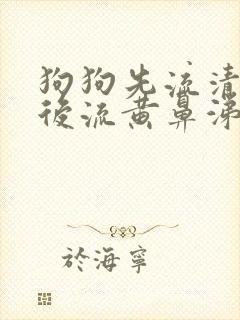 狗狗先流清
後流黄鼻涕
於海寧